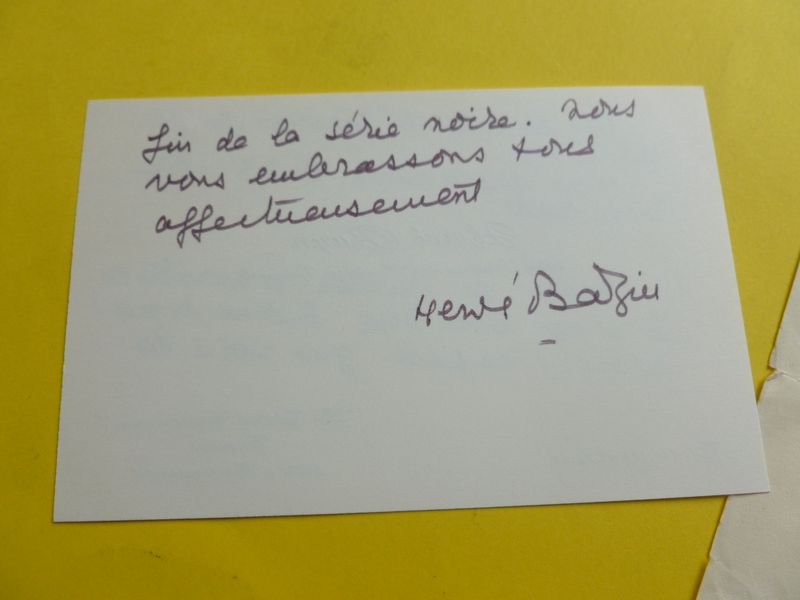 fin de la série noire. Nous
vous embrassons tous
affectueusement
Hervé Bazin